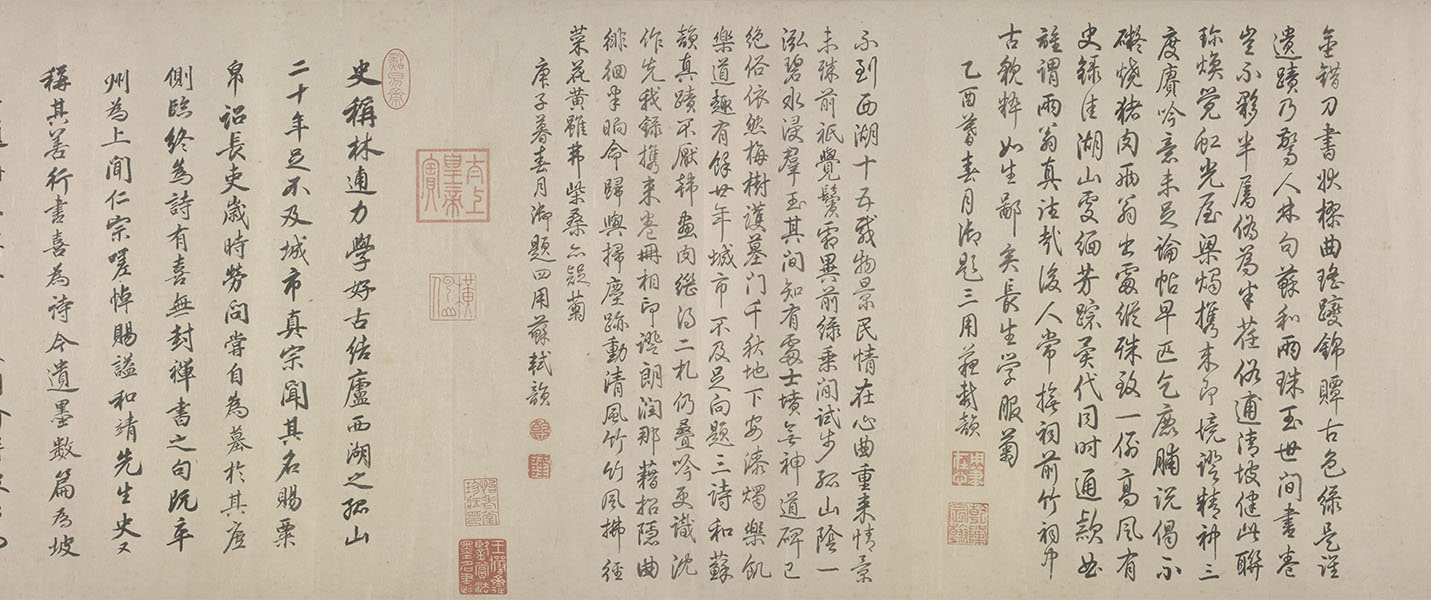 金錯刀書狀樛曲瑤躞錦贉古色綠是誰
遺蹟乃驚人林句蘇和兩珠玉世間書卷
豈不夥半屬偽為半茬俗逋清坡健此聯
珍煥覺虹光屋梁燭攜来即境證精神三
度賡吟意未足論帖早匹乞鹿脯說偈不
礙燒猪肉兩翁出處縱殊致一例高風有
史錄佳湖山處緬芳踪異代同時通款曲
誰謂兩翁真往哉後人常薦祠前竹祠中
古貌粹如生鄙矣長生学服菊
乙酉暮春月御題三用蘇軾韻
乾隆宸翰
不到西湖十五載物景民情在心曲重来情景
未殊前祇覺鬢霜異前綠乘閒試步孤山陰一
泓碧水浸羣玉其間知有處士墳無神道碑已
絕俗依然梅樹護墓門千秋地下安漆燭樂飢
樂道趣有餘廿年城市不及足向題三詩和蘇
韻真蹟不厭韓畫肉繼得二札仍疊吟更識沈
作先我錄攜来卷冊相印證朗潤那藉招隱曲
徘徊半晌命歸輿掃塵跡動清風竹竹風拂徑
菜花黃雖非柴桑亦疑菊
庚子暮春月御題四用蘇軾韻
乾
隆
太上皇帝之寶
史稱林逋力學好古結廬西湖之孤山
二十年足不及城市真宗聞其名賜粟
帛詔長吏歲時勞問嘗自為墓於其廬
側臨終為詩有喜無封禪書之句既卒
州為上聞仁宗嗟悼賜謚和靖先生史又
稱其善行書喜為詩今遺墨數篇為坡